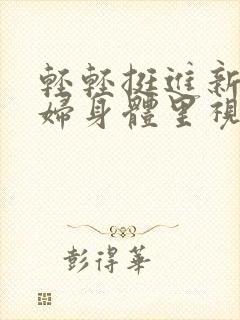 輕輕挺進新
婦身體里視
彭得華